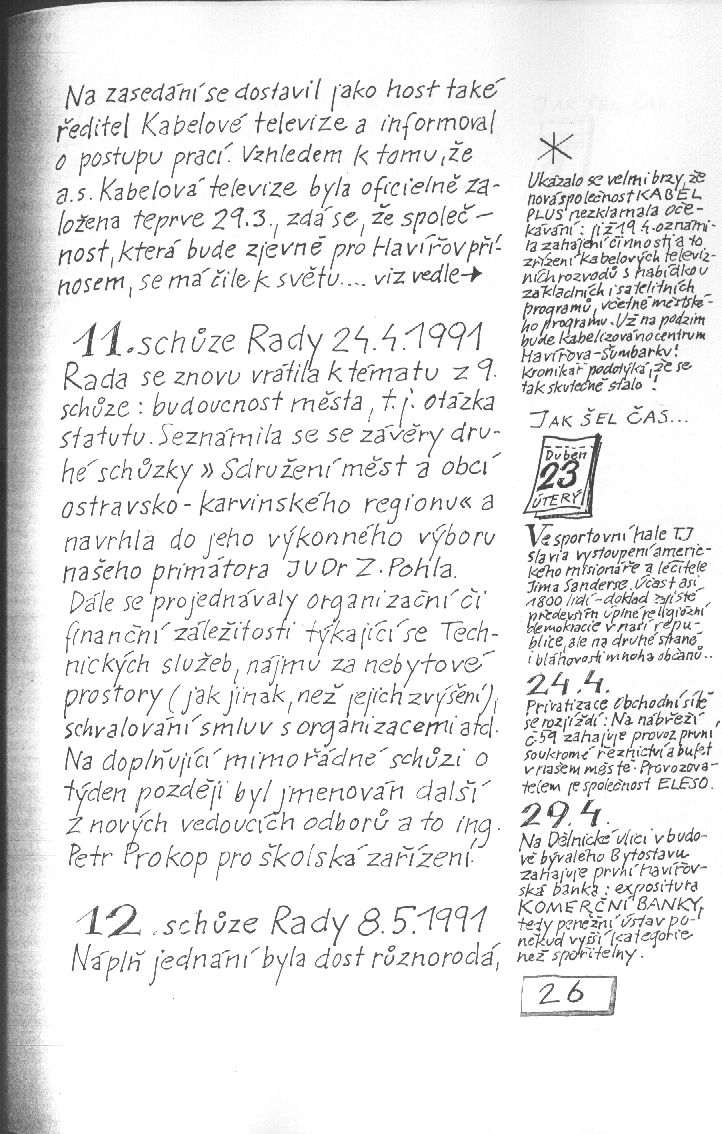 Na zasedání se dostavil jako host také
ředitel Kabelové televize a informoval
o postupu prací. Vzhledem k tomu, že
a.s. Kabelová televize byla oficielně za-
ložena teprve 29.3., zdá se, že společ-
nost, která bude zjevně pro Havířov pří-
nosem, se má čile k světu.... viz vedle→
11. schůze Rady 24.4.1991
Rada se znovu vrátila k tématu z 9.
schůze: budoucnost města, t.j. otázka
statutu. Seznámila se se závěry dru-
hé schůzky » Sdružení měst a obcí
ostravsko-karvinského regionu« a
navrhla do jeho výkonného výboru
našeho primátora JUDr Z. Pohla.
Dále se projednávaly organizační či
finanční záležitosti týkající se Tech-
nických služeb, nájmu za nebytové
prostory (jak jinak, než jejich zvýšení),
schvalování smluv s organizacemi atd.
Na doplňující mimořádné schůzi o
týden později byl jmenován další
z nových vedoucích odborů a to ing.
Petr Prokop pro školská zařízení.
12. schůze Rady 8.5.1991
Náplň jednání byla dost různorodá,
*
Ukázalo se velmi brzy, že
nová společnost KABEL
PLUS nezklamala oče-
kávání: již 19.4. oznámi-
la zahájení činnosti a to
zřízení kabelových televiz-
ních rozvodů s nabídkou
základních i satelitních
programů, včetně městské-
ho programu. Už na podzim
bude kabelizováno centrum
Havířova-Šumbarku!
Kronikář podotýká, že se
tak skutečně stalo!
JAK ŠEL ČAS...
Duben
23
ÚTERÝ
Ve sportovní hale TJ
Slavia vystoupení americ-
kého misionáře a léčitele
Jima Sanderse. Účast asi
1800 lidí - doklad zajisté
především úplné religiózní
demokracie v naší repu-
blice, ale na druhé straně
i bláhovosti mnoha občanů..
24.4.
Privatizace obchodní sítě
se rozjíždí: Na nábřeží,
č.59 zahajuje provoz první
soukromé řeznictví a bufet
v našem městě. Provozova-
telem je společnost ELESO.
29.4.
Na Dělnické ulici v budo-
vě bývalého Bytostavu
zahajuje první havířov-
ská banka: expositura
KOMERČNÍ BANKY,
tedy peněžní ústav po-
někud vyšší kategorie
než spořitelny.
26